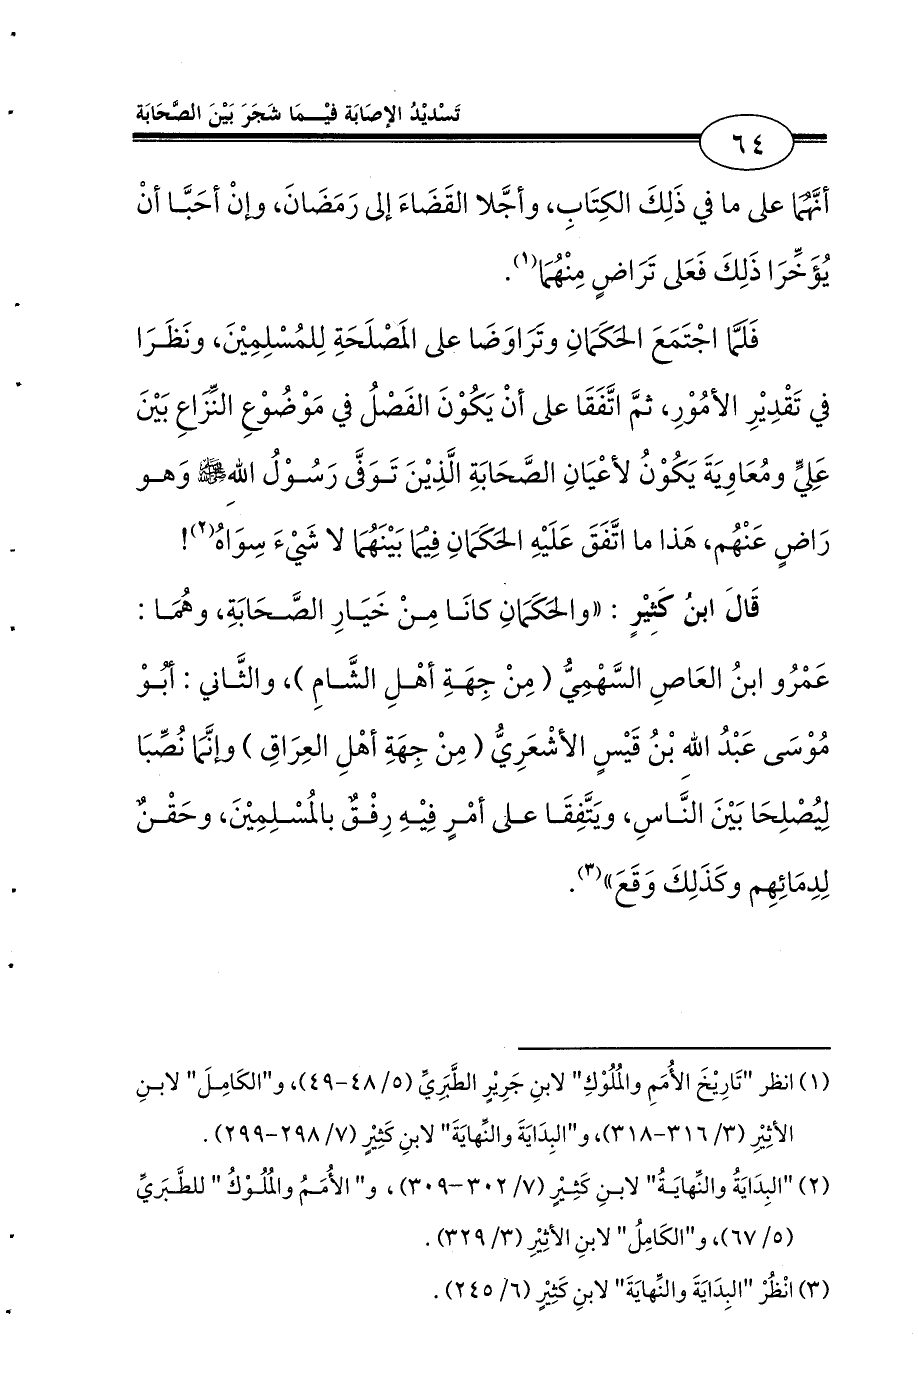 تَسْدِيْدُ الإصَابَة فيْـمَا شَجَرَ بَيْنَ الصَّحَابَة
٦٤
أنَّهُمَا على ما في ذَلِكَ الكِتَابِ، وأجَّلا القَضَاءَ إلى رَمَضَانَ، وإنْ أحَبَّا أنْ
يُؤَخِّرَا ذَلِكَ فَعَلى تَرَاضٍ مِنْهُمَا(١).
فَلَمَّا اجْتَمَعَ الحَكَمَانِ وتَرَاوَضَا على المَصْلَحَةِ لِلمُسْلِمِيْنَ، ونَظَرَا
في تَقْدِيْرِ الأمُوْرِ، ثمَّ اتَّفَقَا على أنْ يَكُوْنَ الفَصْلُ في مَوْضُوْعِ النِّزَاعِ بَيْنَ
عَلِيٍّ ومُعَاوِيَةَ يَكُوْنُ لأعْيَانِ الصَّحَابَةِ الَّذِيْنَ تَوَفَّى رَسُوْلُ اللهِ ﷺ وَهو
رَاضٍ عَنْهُم، هَذا ما اتَّفَقَ عَلَيْهِ الحَكَمَانِ فِيْمَا بَيْنَهُمَا لا شَيْءَ سِوَاهُ(٢)!
قَالَ ابنُ كَثِيْرٍ : «والحَكَمَانِ كانَا مِنْ خَيَارِ الصَّحَابَةِ، وهُمَا :
عَمْرُو ابنُ العَاصِ السَّهْمِيُّ ( مِنْ جِهَةِ أهْلِ الشَّامِ )، والثَّاني : أبُوْ
مُوْسَى عَبْدُ اللهِ بْنُ قَيْسٍ الأشْعَرِيُّ ( مِنْ جِهَةِ أهْلِ العِرَاقِ ) وإنَّمَا نُصِّبَا
لِيُصْلِحَا بَيْنَ النَّاسِ، ويَتَّفِقَا على أمْرٍ فِيْهِ رِفْقٌ بالمُسْلِمِيْنَ، وحَقْنٌ
لِدِمَائِهِم وكَذَلِكَ وَقَعَ»(٣).
(١) انظر "تَارِيْخَ الأُمَمِ والمُلُوْكِ" لابنِ جَرِيْرٍ الطَّبَرِيِّ (٥/ ٤٨-٤٩)، و"الكَامِلَ" لابنِ
الأثِيْرِ (٣/ ٣١٦-٣١٨)، و"البِدَايَةَ والنِّهايَةَ" لابنِ كَثِيْرٍ (٧/ ٢٩٨-٢٩٩).
(٢) "البِدَايَةُ والنِّهايَةُ" لابنِ كَثِيْرٍ (٧/ ٣٠٢-٣٠٩)، و" الأُمَمُ والمُلُوْكُ " للطَّبَرِيِّ
(٥/ ٦٧)، و"الكَامِلُ" لابنِ الأثِيْرِ (٣/ ٣٢٩).
(٣) انْظُرْ "البِدَايَةَ والنِّهايَةَ" لابنِ كَثِيْرٍ (٦/ ٢٤٥).